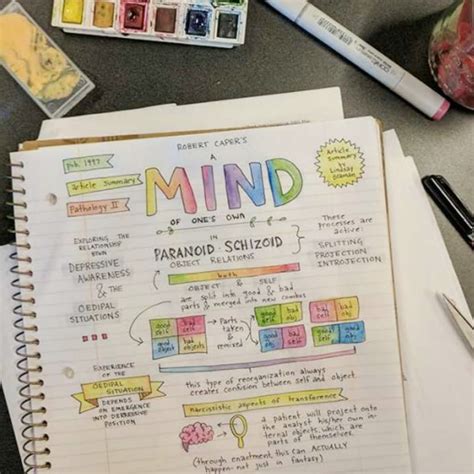 ROBERT CAPER'S
A
MIND
OF ONE'S OWN
pub. 1997
Article Summary
Pathology II
Article
Summary
by
Lindsay
EXPLORING THE
RELATIONSHIP
DEPRESSIVE
AWARENESS
& THE
OEDIPAL
SITUATIONS
IN
PARANOID-SCHIZOID
OBJECT RELATIONS
both
OBJECT & SELF
are split into good & bad
parts & merged into new combos
These
processes are
active:
SPLITTING
PROJECTION
INTROJECTION
good
self
bad
self
good
object
bad
objects
Parts
taken
&
remixed
good
self
bad
obj.
good
obj
bad
self
bad
obj
good
self
this type of reorganization always
creates confusion between self and object
EXPERIENCE
OF THE
OEDIPAL SITUATION
DEPENDS
ON EMERGENCE
INTO DEPRESSIVE
POSITION
narcissistic aspects of transference
a patient will project onto
the analyst his/her own in-
ternal objects, which are
parts of themselves.
(through enactment, this can ACTUALLY
happen- not just in fantasy)